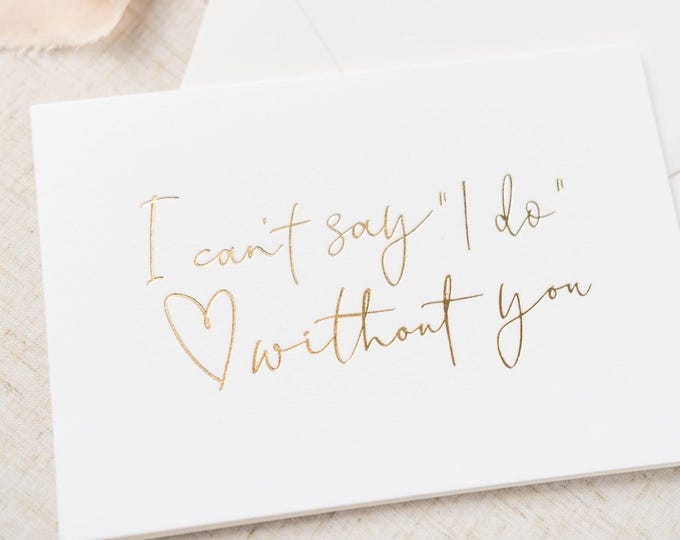 I can't say "I do"
without you